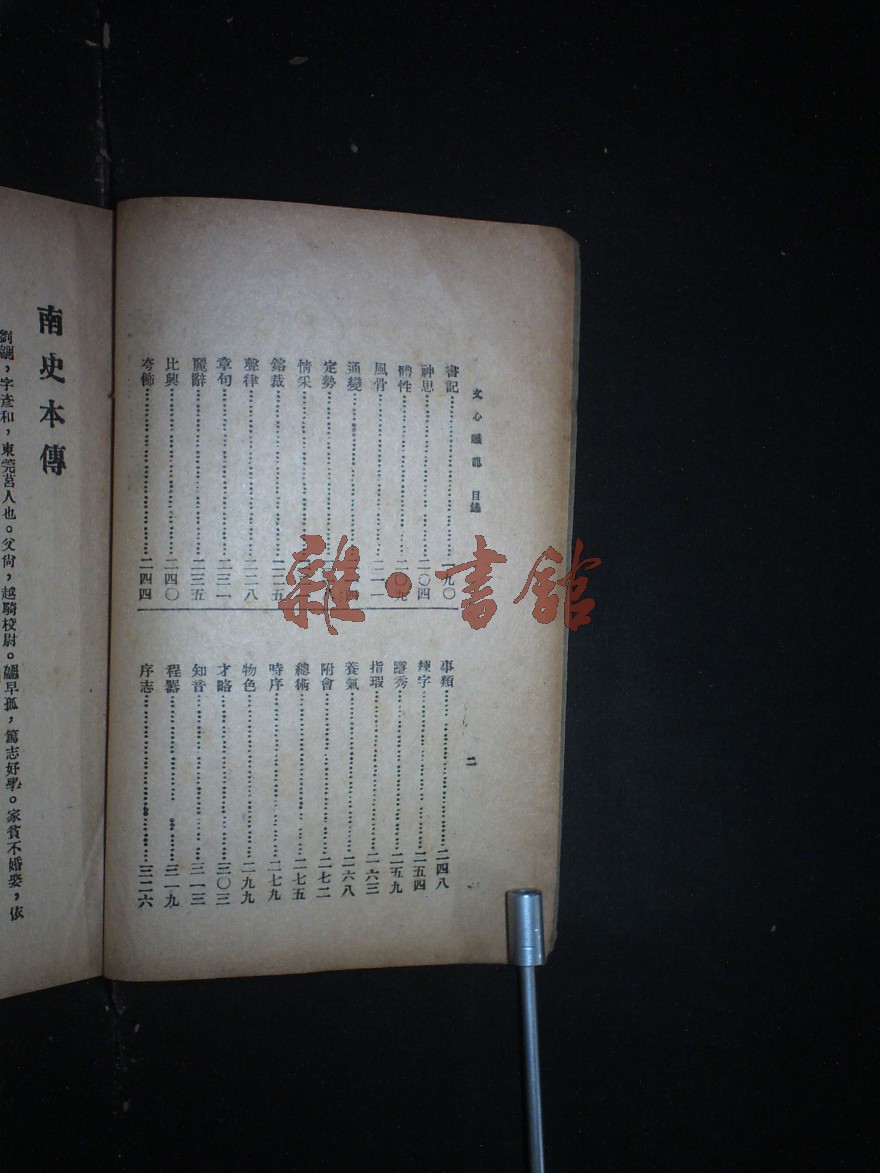 文心雕龍 目錄
二
書記……一九〇
神思……二〇四
體性……二〇九
風骨……二一一
通變
定勢
情采
鎔裁……二二五
聲律……二二八
章句……二三一
麗辭……二三五
比興……二四〇
夸飾……二四四
事類……二四八
練字……二五四
隱秀……二五九
指瑕……二六三
養氣……二六八
附會……二七二
總術……二七五
時序……二七九
物色……二九九
才略……三〇三
知音……三一三
程器……三一九
序志……三二六
南史本傳
劉勰,字彥和,東莞莒人也。父尙,越騎校尉。勰早孤,篤志好學。家貧不婚娶,依
雜·書館